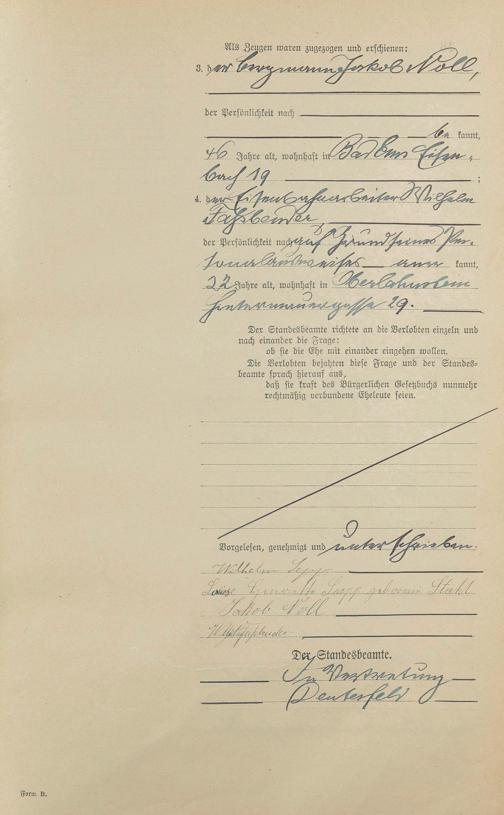 Als Zeugen waren zugezogen und erschienen:
3. der Bergmann Jakob Noll,
der Persönlichkeit nach
be kannt,
46 Jahre alt, wohnhaft in Bad Ems Eisen-
bach 19 ;
4. der Eisenbahnarbeiter Wilhelm
Faßbender,
der Persönlichkeit nach auf Grund seines Per-
sonalausweises aner kannt,
22 Jahre alt, wohnhaft in Oberlahnstein
Hintermauergasse 29.
Der Standesbeamte richtete an die Verlobten einzeln und
nach einander die Frage:
ob sie die Ehe mit einander eingehen wollen.
Die Verlobten bejahten diese Frage und der Standes-
beamte sprach hierauf aus,
daß sie kraft des Bürgerlichen Gesetzbuchs nunmehr
rechtmäßig verbundene Eheleute seien.
Vorgelesen, genehmigt und unterschrieben.
Wilhelm
geborene Stahl
Jakob Noll
Der Standesbeamte.
In Vertretung
Form B.